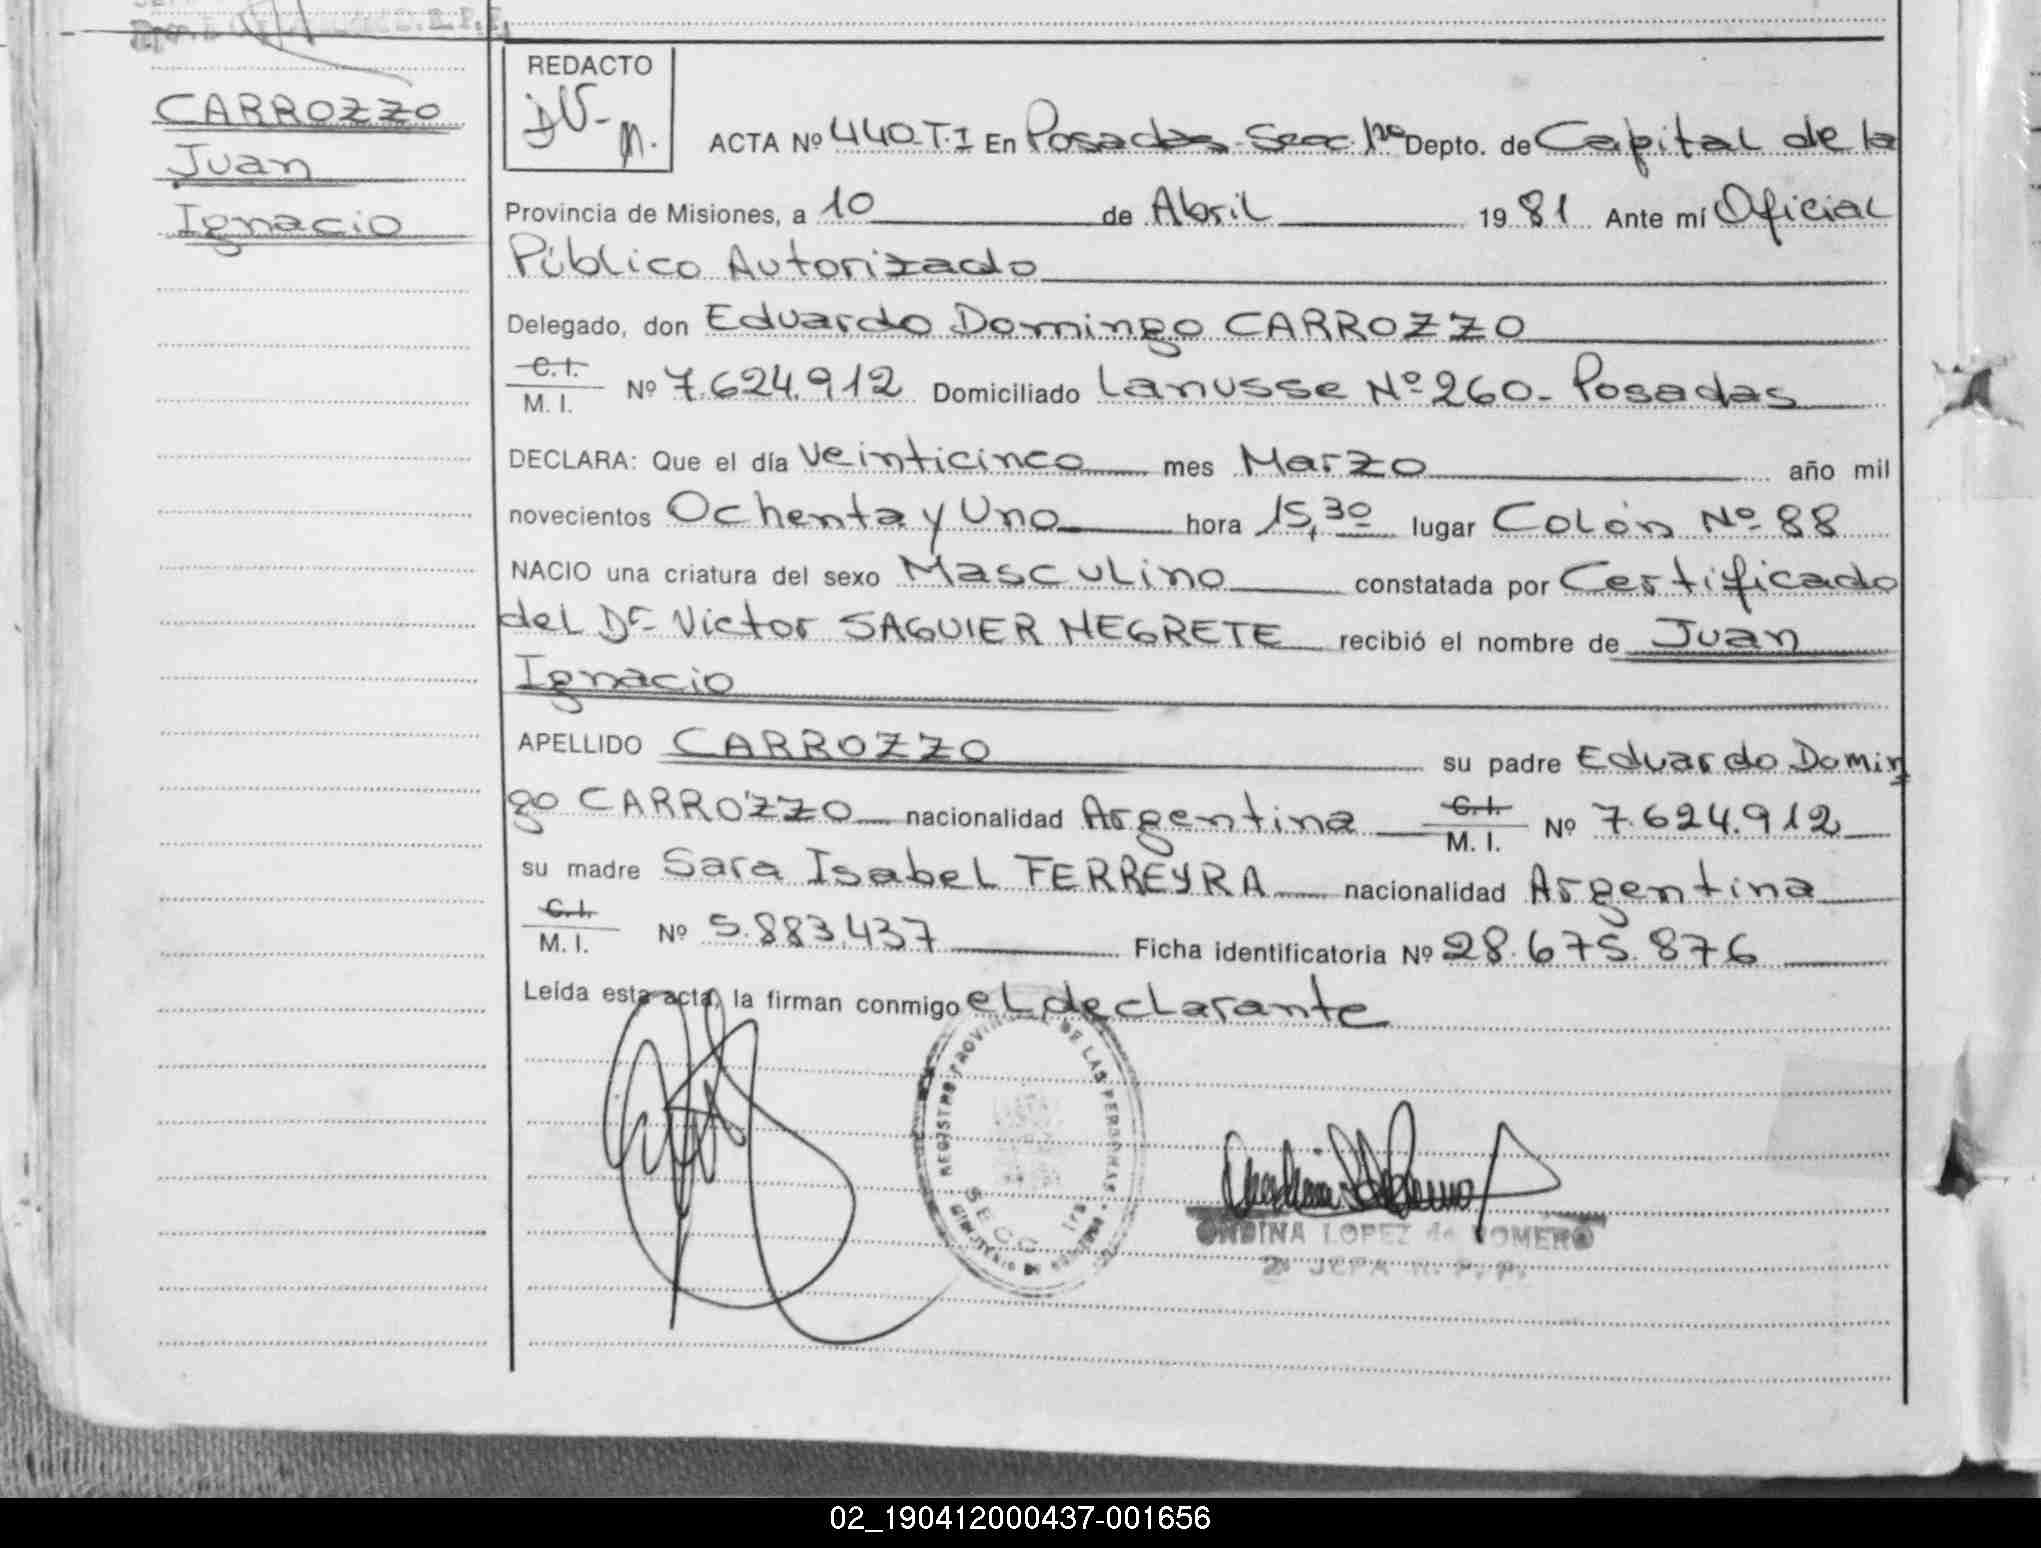 CARROZZO
Juan
Ignacio
REDACTO
ACTA Nº 440-T.I En Posadas-Secc. 1ra Depto. de Capital de la
Provincia de Misiones, a 10 de Abril 1981 Ante mí Oficial
Público Autorizado
Delegado, don Eduardo Domingo CARROZZO
C.I.
M. I. Nº 7.624.912 Domiciliado Lanusse Nº 260- Posadas
DECLARA: Que el día veinticinco mes Marzo año mil
novecientos Ochenta y Uno hora 15,30 lugar Colón Nº 88
NACIO una criatura del sexo Masculino constatada por Certificado
del Dr Victor SAGUIER NEGRETE recibió el nombre de Juan
Ignacio
APELLIDO CARROZZO su padre Eduardo Domin
go CARROZZO nacionalidad Argentina C.I. M. I. Nº 7.624.912
su madre Sara Isabel FERREYRA nacionalidad Argentina
C.I.
M. I. Nº 5.883.437 Ficha identificatoria Nº 28.675.876
Leída esta acta, la firman conmigo el declarante
REGISTRO PROVINCIAL DE LAS PERSONAS
SECC 1ra
ONDINA LOPEZ de ROMERO
2º JEFA R. P. P.
02_190412000437-001656